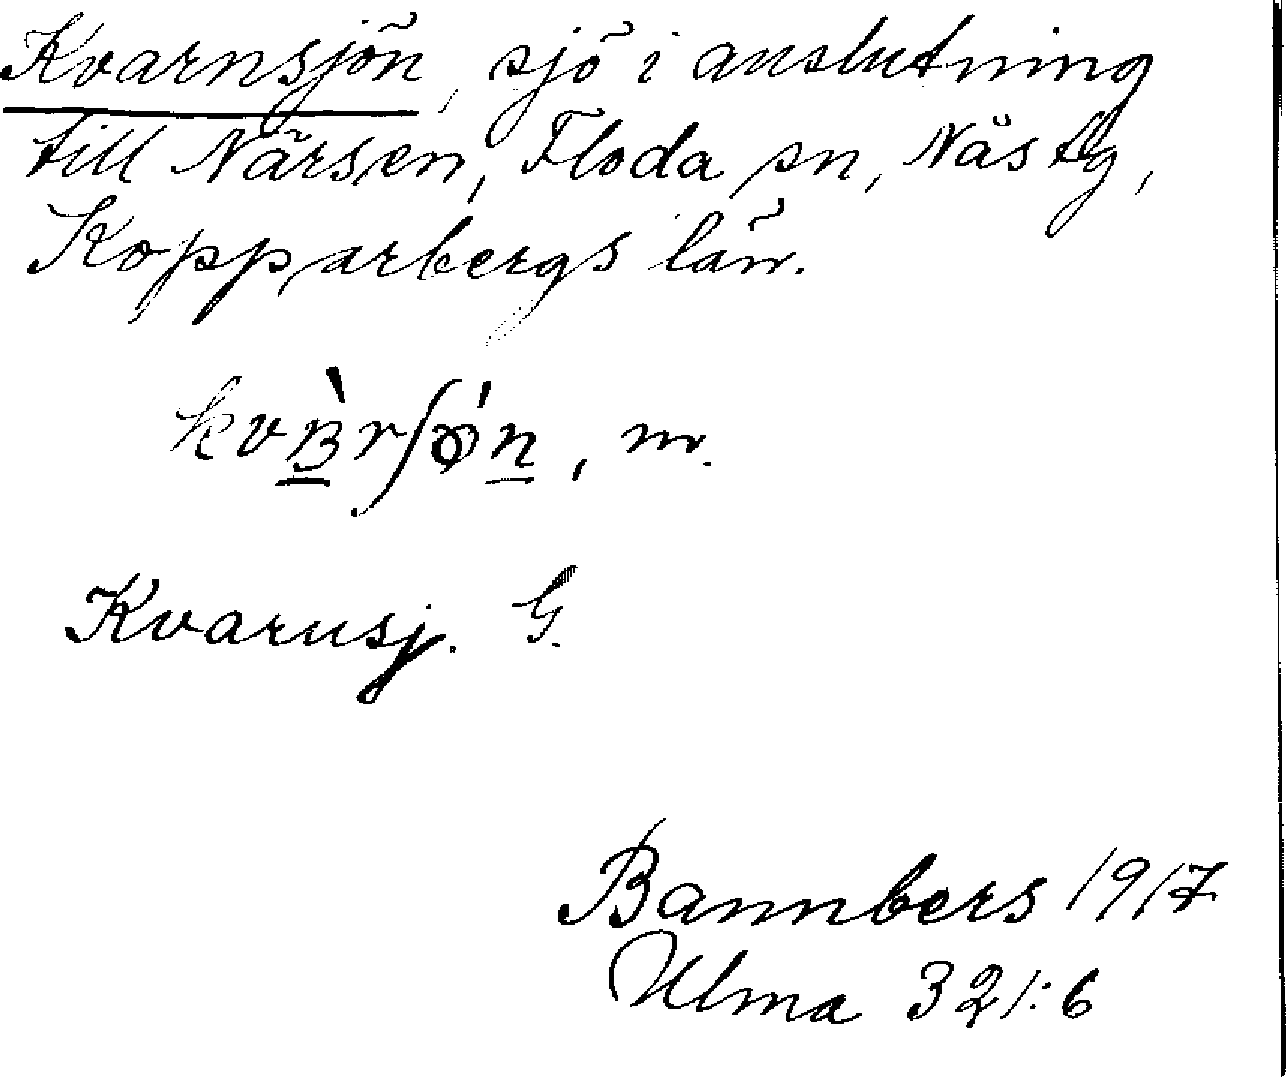 Kvarnsjön, sjö i anslutning
till Närsen, Floda sn, Näs tg,
Kopparbergs län.
, m.
Kvarnsj. G.
Bannbers 1917
Ulma 321:6